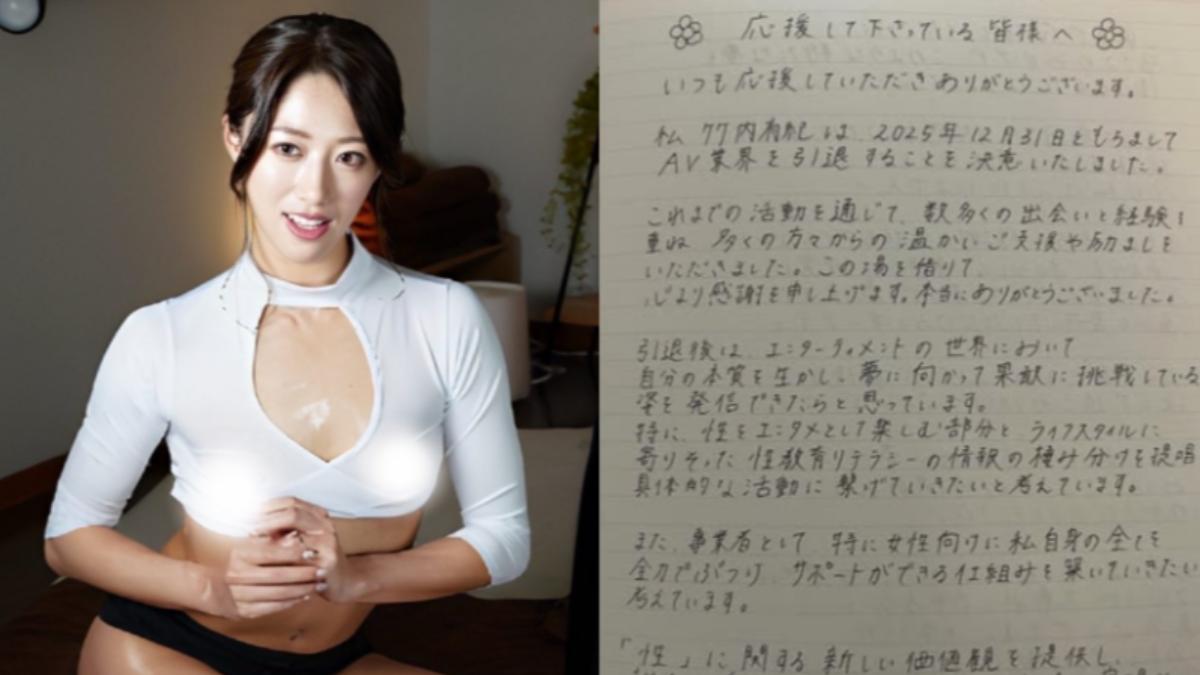 応援して下さっている皆様へ
いつも応援していただきありがとうございます。
私 竹内有紀は、2025年12月31日をもちまして
AV業界を引退することを決意いたしました。
これまでの活動を通じて、数多くの出会いと経験を
重ね、多くの方々からの温かいご支援や励ましを
いただきました。この場を借りて、
心より感謝を申し上げます。本当にありがとうございました。
引退後は、エンターテイメントの世界において
自分の本質を生かし、夢に向かって果敢に挑戦している
姿を発信できたらと思っています。
特に、性をエンタメとして楽しむ部分と、ライフスタイルに
寄りそった性教育リテラシーの情報の棲み分けを提唱
具体的な活動に繋げていきたいと考えています。
また、事業者として、特に女性向けに私自身の全てを
全力でぶつけ、サポートができる仕組みを築いていきたい
考えています。
「性」に関する新しい価値観を提供し、